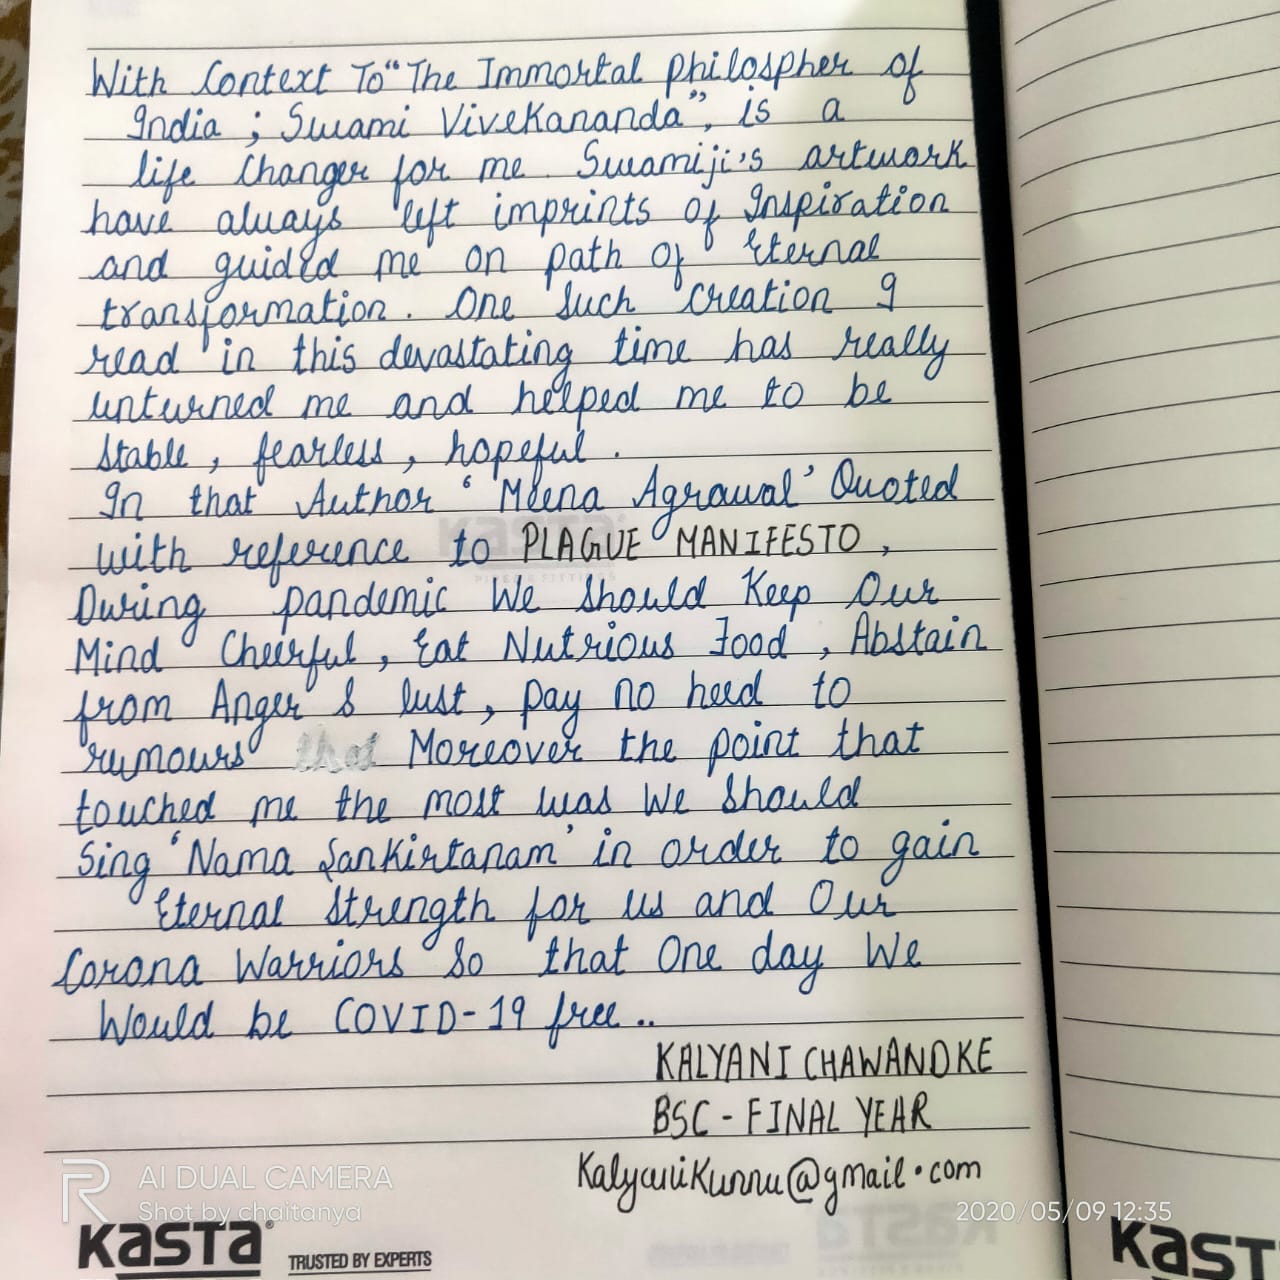 With Context To "The Immortal philospher of
India ; Swami Vivekananda", is a
life changer for me. Swamiji's artwork
have always left imprints of Inspiration
and guided me on path of Eternal
transformation. One such creation I
read in this devastating time has really
unturned me and helped me to be
stable, fearless, hopeful.
In that Author 'Meena Agrawal' Quoted
with reference to PLAGUE MANIFESTO,
During pandemic We should Keep Our
Mind Cheerful, Eat Nutrious Food, Abstain
from Anger & lust, pay no heed to
rumours that Moreover the point that
touched me the most was We should
Sing 'Nama Sankirtanam' in order to gain
Eternal Strength for us and Our
Corona Warriors So that One day We
Would be COVID-19 free..
KALYANI CHAWANDKE
BSC - FINAL YEAR
KalyaniKunnu@gmail.com
AI DUAL CAMERA
Shot by chaitanya
2020/05/09 12:35
KASTA®
TRUSTED BY EXPERTS
KAST